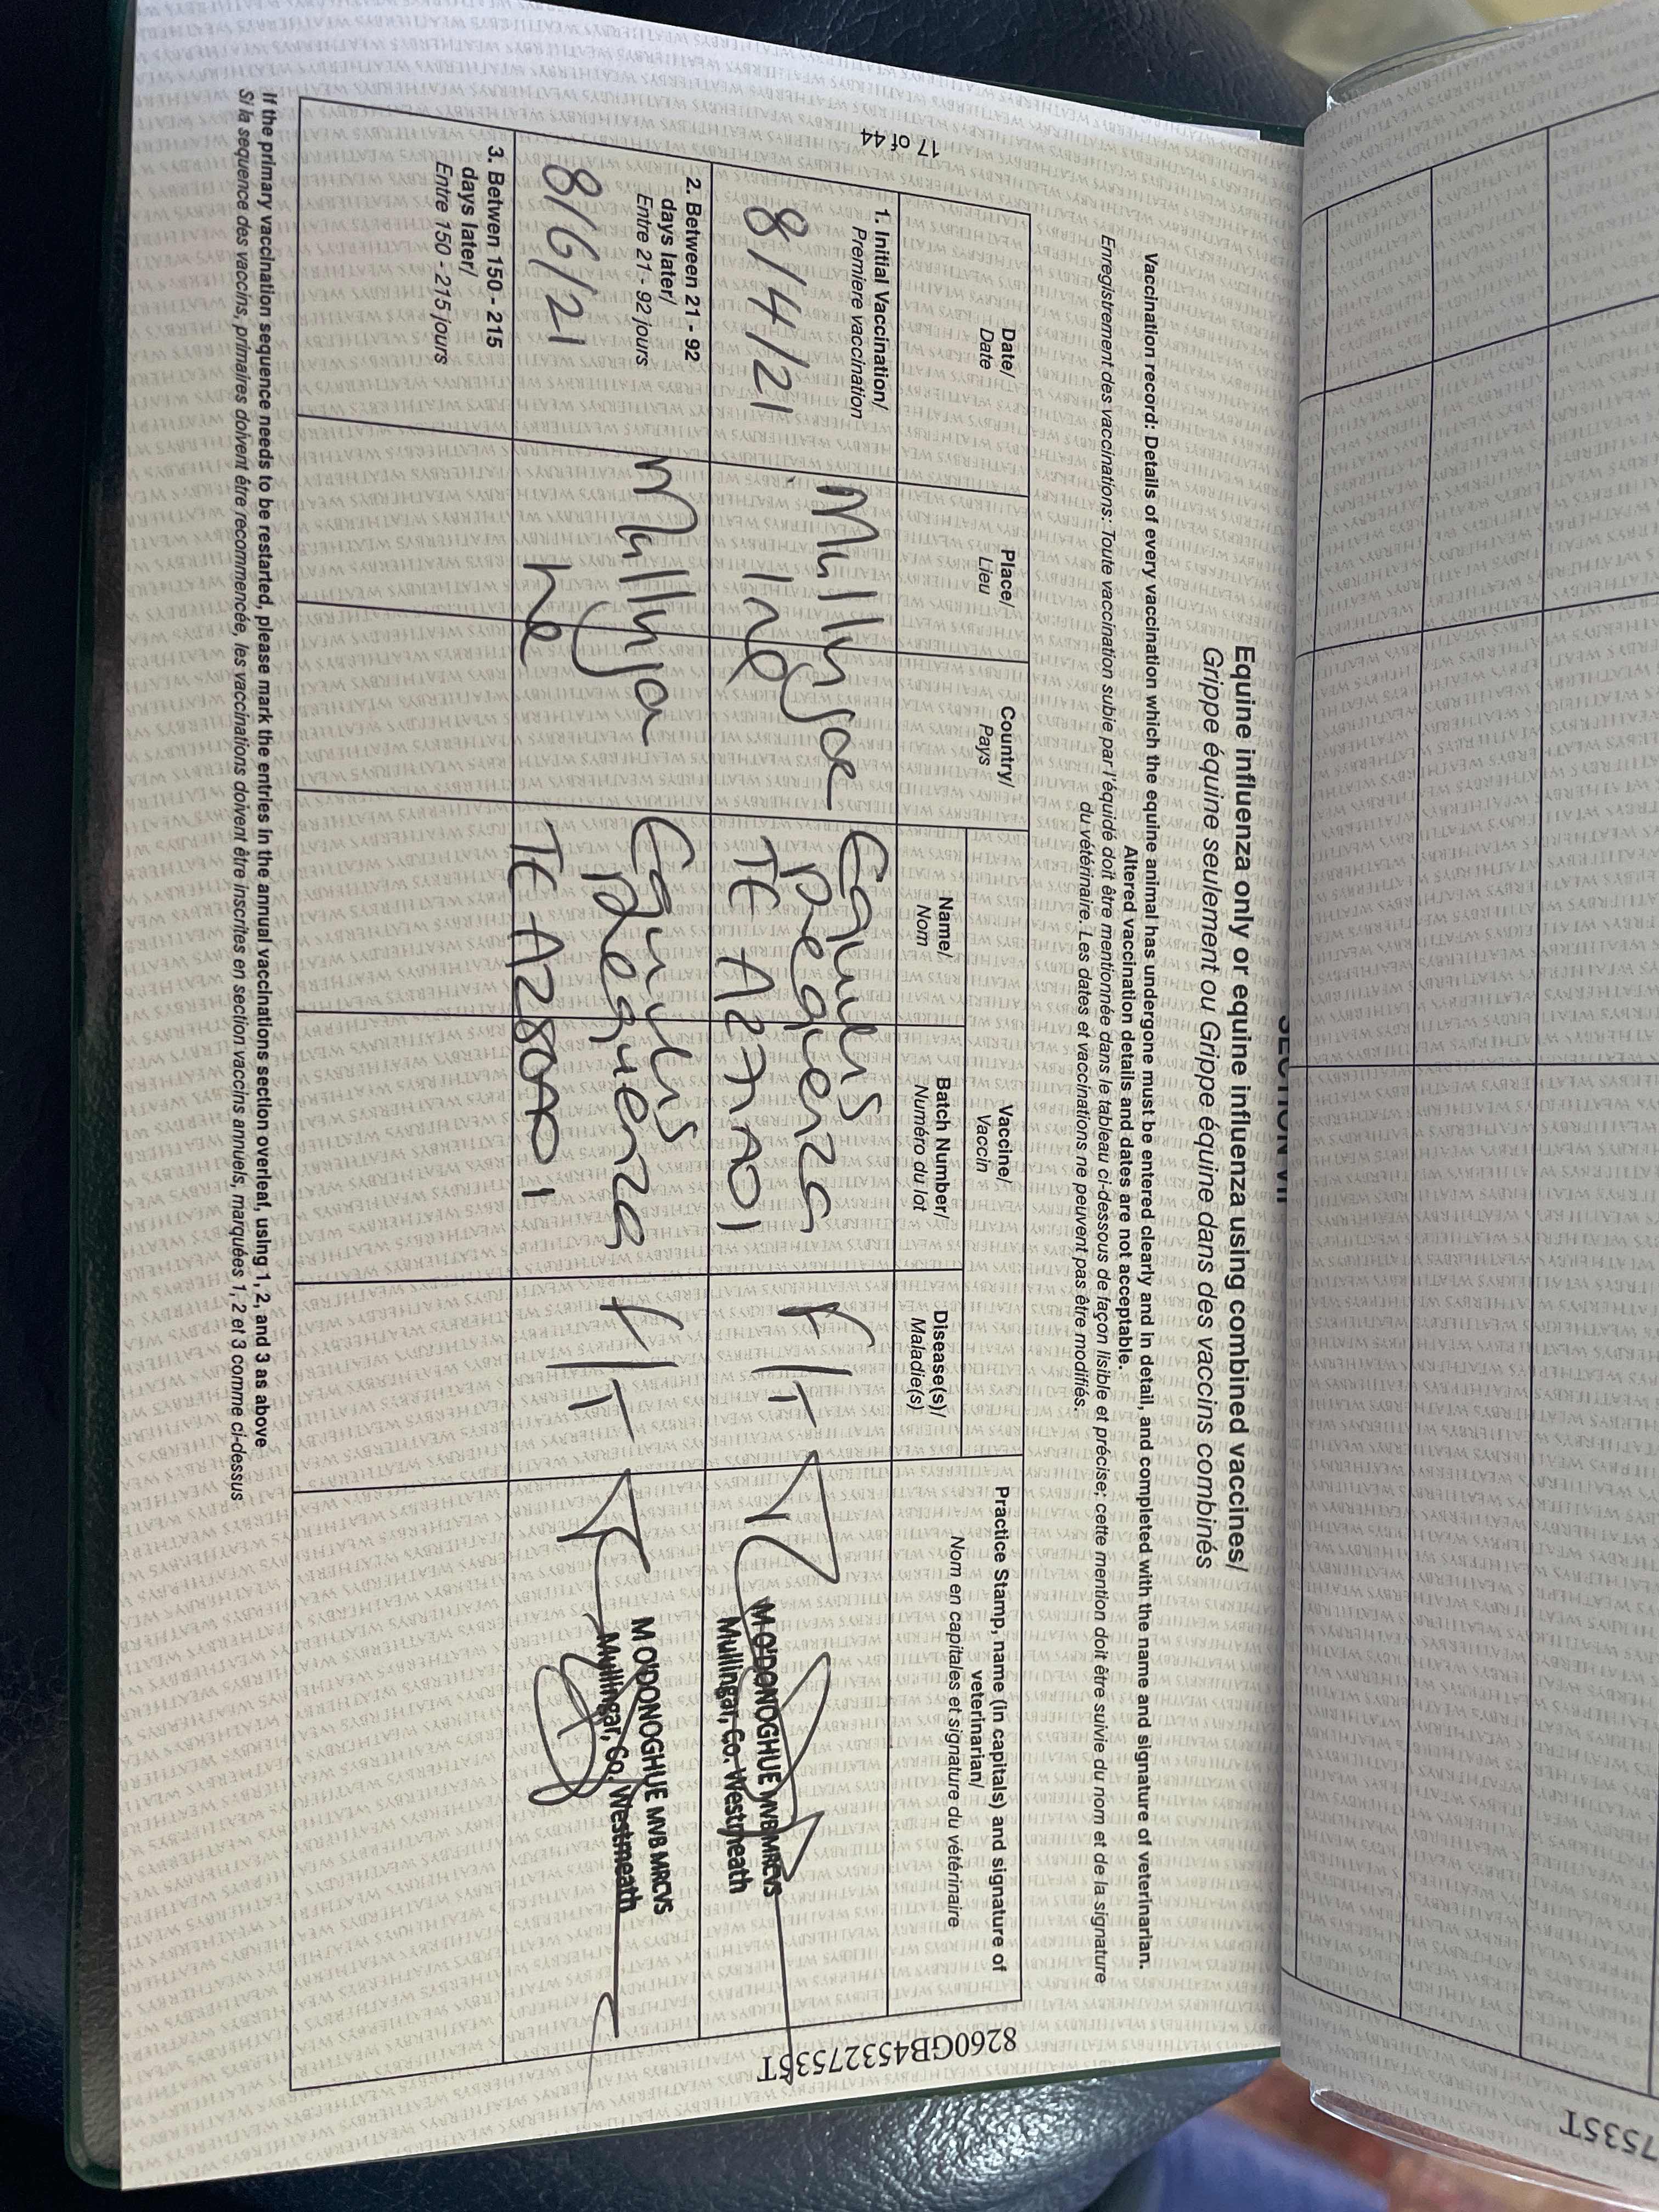 SECTION VII
Equine influenza only or equine influenza using combined vaccines/
Grippe équine seulement ou Grippe équine dans des vaccins combinés
Vaccination record: Details of every vaccination which the equine animal has undergone must be entered clearly and in detail, and completed with the name and signature of veterinarian.
Altered vaccination details and dates are not acceptable.
Enregistrement des vaccinations: Toute vaccination subie par l'équidé doit être mentionnée dans le tableau ci-dessous de façon lisible et précise; cette mention doit être suivie du nom et de la signature
du vétérinaire. Les dates et vaccinations ne peuvent pas être modifiés.
Date/
Date
Place/
Lieu
Country/
Pays
Vaccine/
Vaccin
Name/
Nom
Batch Number/
Numéro du lot
Disease(s)/
Maladie(s)
Practice Stamp, name (in capitals) and signature of
veterinarian/
Nom en capitales et signature du vétérinaire
1. Initial Vaccination/
Premiere vaccination
8/4/21
Equilis
Prequenza
TE A27A01
F/T
M O'DONOGHUE MVB MRCVS
Mullingar, Co. Westmeath
2. Between 21 - 92
days later/
Entre 21 - 92 jours
8/6/21
Equilis
Prequenza
TE A280A01
F/T
M O'DONOGHUE MVB MRCVS
Mullingar, Co. Westmeath
3. Betwen 150 - 215
days later/
Entre 150 - 215 jours
If the primary vaccination sequence needs to be restarted, please mark the entries in the annual vaccinations section overleaf, using 1, 2, and 3 as above
Si la sequence des vaccins, primaires doivent être recommencée, les vaccinations doivent être inscrites en section vaccins annuels, marquées 1, 2 et 3 comme ci-dessus
17 of 44
8260GB45327535T
7535T